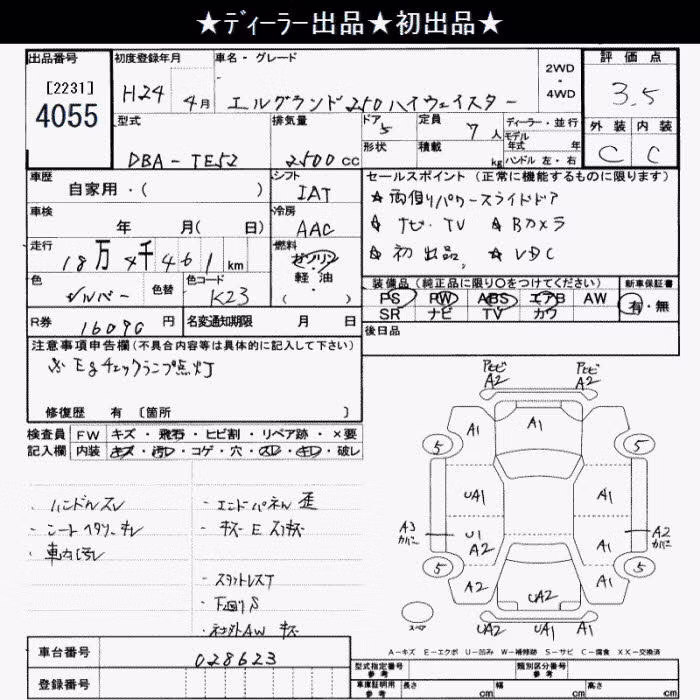 ★ディーラー出品★初出品★
出品番号
[2231]
4055
初度登録年月
H24 4月
車名・グレード
エルグランド250ハイウェイスター
2WD
・
4WD
評価点
3.5
外装 内装
C C
型式
DBA-TE52
排気量
2500cc
ドア
5
形状
定員
7人
積載
kg
ディーラー・並行
モデル
年式 年
ハンドル 左・右
車歴
自家用・( )
シフト
IAT
セールスポイント (正常に機能するものに限ります)
★両側パワースライドドア
★ナビ・TV ★Bカメラ
★初出品 ★VDC
車検
年 月( 日)
冷房
AAC
走行
18万4千461km
燃料
ガソリン
軽油
( )
色
シルバー
色替
色コード
K23
装備品 (純正品に限り○をつけてください)
PS PW ABS エアB AW
SR ナビ TV カワ
新車保証書
有・無
R券
16090円
名変通知期限 月 日
後日品
注意事項申告欄 (不具合内容等は具体的に記入して下さい)
※Egチェックランプ点灯
修復歴 有 〔箇所 〕
検査員
記入欄
FW キズ・飛石・ヒビ割・リペア跡・×要
内装 キズ・汚レ・コゲ・穴・スレ・キレ・破レ
・ハンドルスレ
・シートヘタリ、キレ
・車内汚レ
・エンドパネル歪
・キズEスリキズ
・スタットレスT
・下回りS
キズ
A2 A2
A1 A1
5 5
UA1 A1
A3
カバー
U1
A2
A1
A2
カバー
5 5
A2 UA2 A1
スペア
UA2 UA1 A1
A-キズ E-エクボ U-凹み W-補修跡 S-サビ C-腐食 XX-交換済
車台番号
028623
登録番号
型式指定番号
参考
類別区分番号
参考
車庫証明用
参考
長さ cm
幅 cm
高さ cm